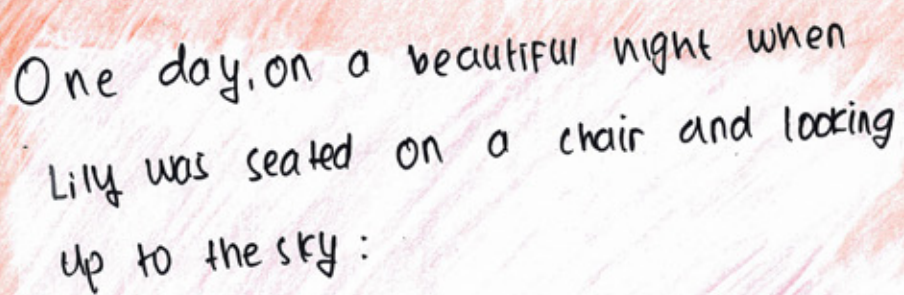 One day, on a beautiful night when
Lily was seated on a chair and looking
up to the sky :